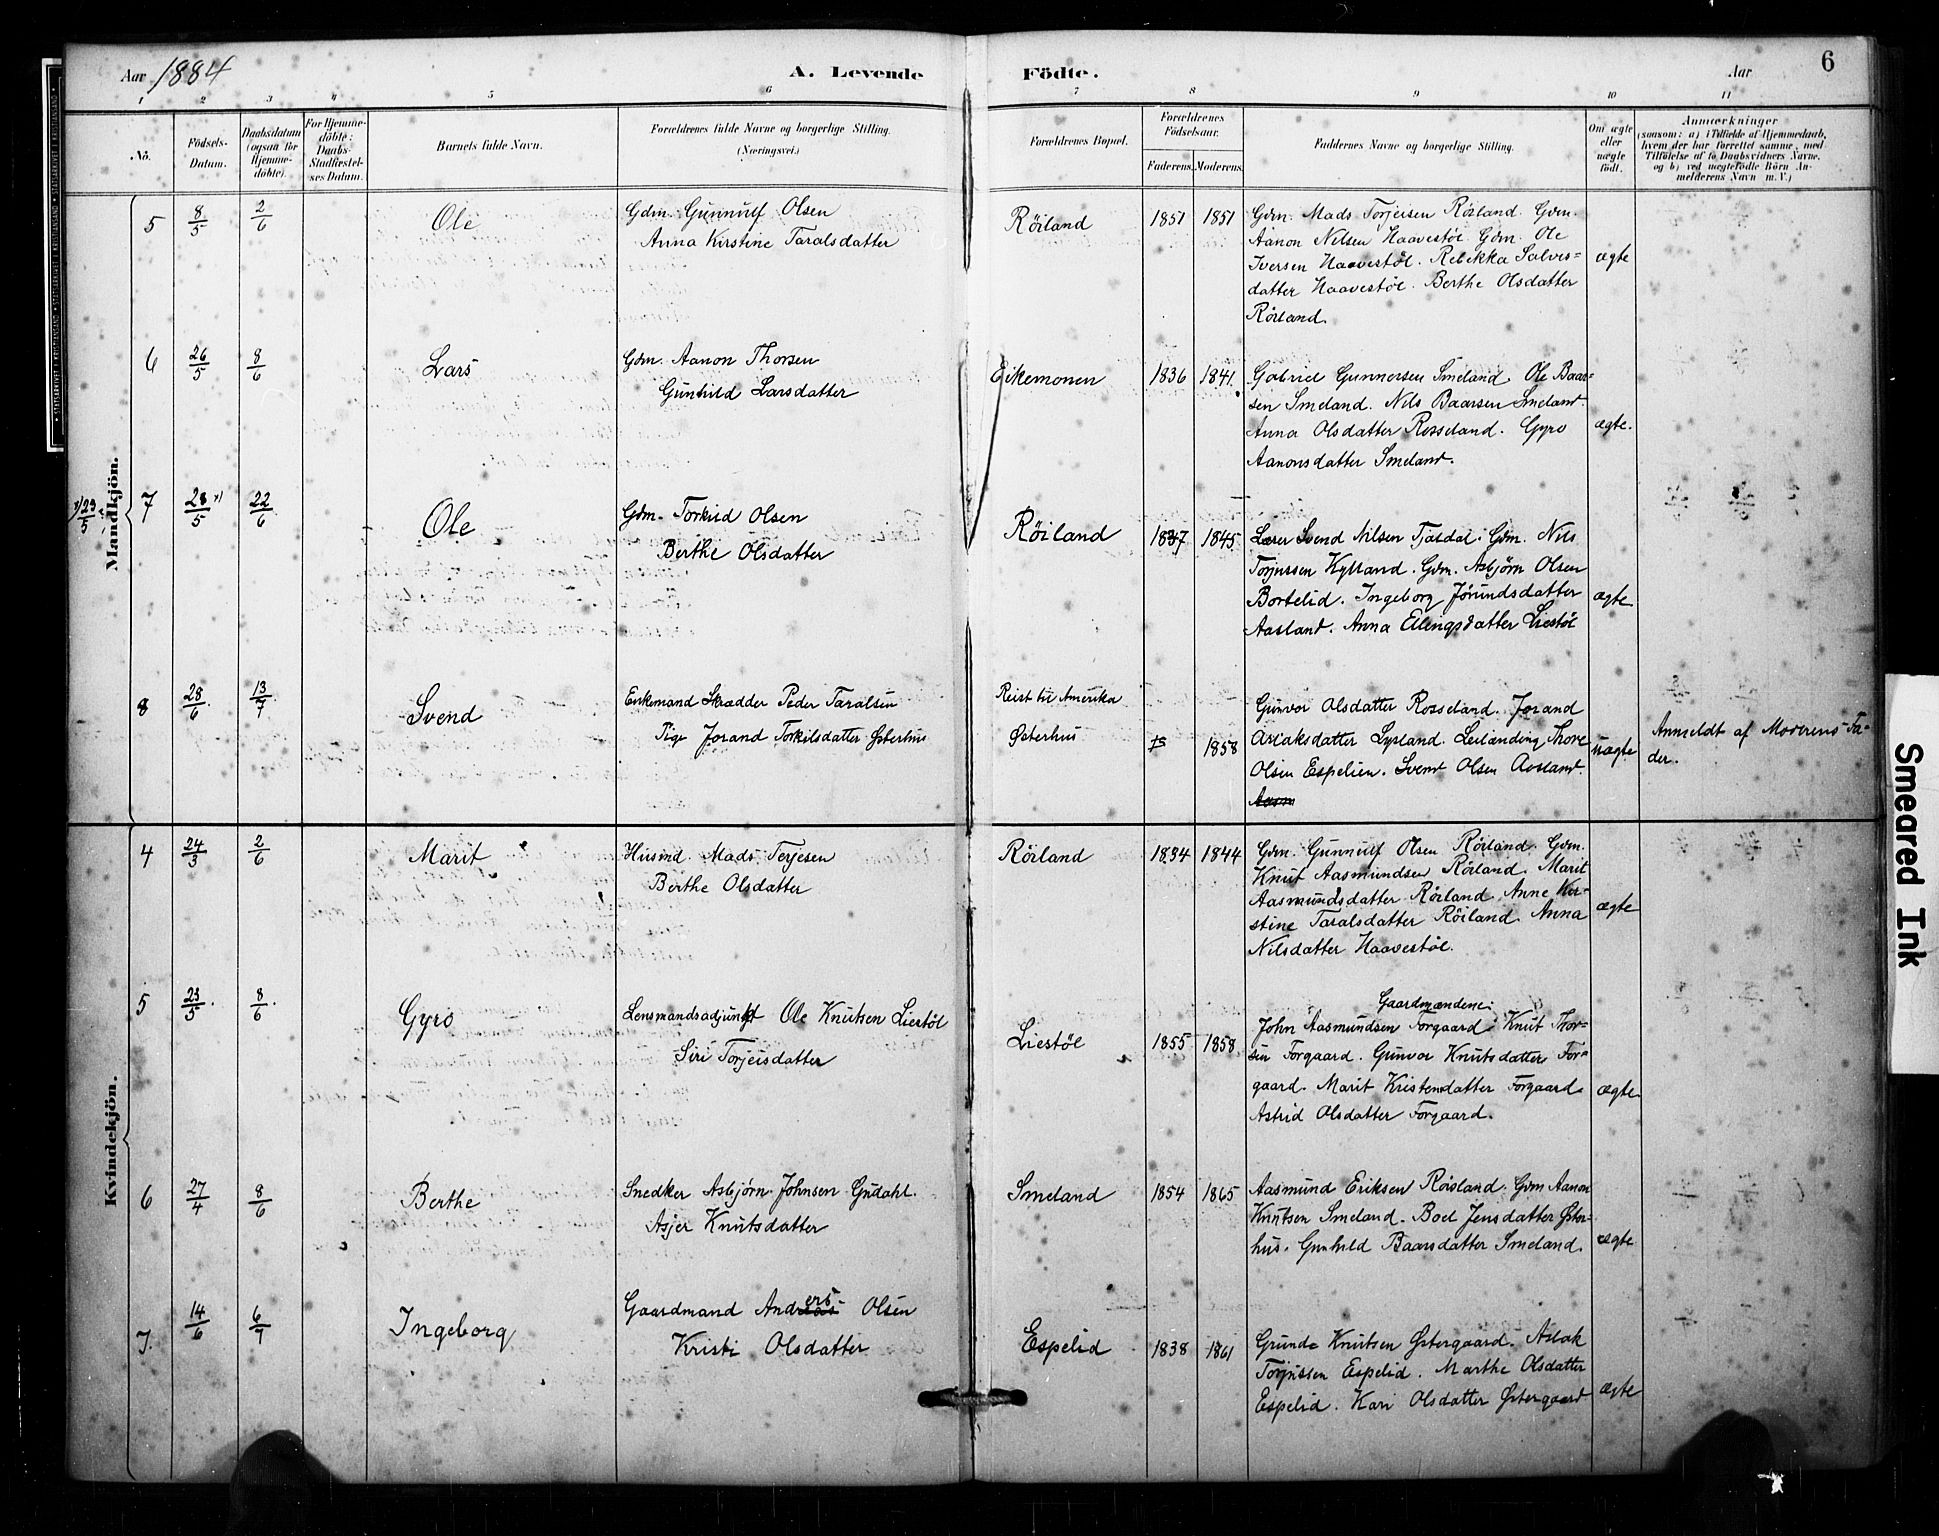 Aar 1884
A. Levende Födte.
Aar
6
1 2 3 4 5 6 7 8 9 10 11
No.
Födsels-
Datum.
Daabsdatum
(ogsaa for
Hjemme-
döbte).
For Hjemme-
döbte;
Daabs-
Stadfæstel-
ses Datum.
Barnets fulde Navn.
Forældrenes fulde Navne og borgerlige Stilling.
(Næringsvei.)
Forældrenes Bopæl.
Forældrenes
Födselsaar.
Faderens. Moderens.
Faddernes Navne og borgerlige Stilling.
Om ægte
eller
uægte
födt.
Anmærkninger
(saasom: a) i Tilfælde af Hjemmedaab,
hvem der har forrettet samme, med
Tilföielse af to Daabsvidners Navne,
og b) ved uægtefödte Börn An-
melderens Navn m. V.)
Mandkjön.
5 8/5 2/6 Ole
Gdm. Gunnulf Olsen
Anna Kirstine Taralsdatter
Röiland 1851 1851
Gdm. Mads Torjeisen Röiland. Gdm.
Aanon Nilsen Haavestöl. Gdm. Ole
Iversen Haavestöl. Rebekka Salves=
datter Haavestöl. Berthe Olsdatter
Röiland.
ægte
6 26/5 8/6 Lars
Gdm. Aanon Thorsen
Gunhild Larsdatter
Eikemonen 1836 1841.
Gabriel Gunnersen Smeland. Ole Baar=
sen Smeland. Nils Baarsen Smeland.
Anna Olsdatter Rosseland. Gyro
Aanonsdatter Smeland.
ægte.
x) 23/5
7 28/5 x) 22/6 Ole
Gdm. Torkild Olsen
Berthe Olsdatter
Röiland 1837 1845
Lærer Svend Nilsen Tjaldal. Gdm. Nils
Torjussen Kylland. Gdm. Asbjörn Olsen
Bortelid. Ingeborg Jörundsdatter
Aasland. Anna Ellingsdatter Liestöl
ægte
8 28/6 13/7 Svend
Enkemand Skrædder Peder Taralsen
Pige Jorand Torkilsdatter Østerhus
Reist til Amerika
Østerhus 1858
Gunvor Olsdatter Rosseland. Jorand
Aslaksdatter Lysland. Leilænding Thore
Olsen Espelien. Svend Olsen Aasland.
uægte
Anmeldt af Moderens Fa-
der.
Kvindekjön.
4 24/3 2/6 Marit
Husmd. Mads Terjesen
Berthe Olsdatter
Röiland 1834 1844
Gdm. Gunnulf Olsen Röiland. Gdm.
Knut Aasmundsen Röiland. Marit
Aasmundsdatter Röiland. Anne Kir=
stine Taralsdatter Röiland. Anna
Nilsdatter Haavestöl.
ægte
5 23/5 8/6 Gyro
Lensmandsadjunkt Ole Knutsen Liestöl
Siri Torjeisdatter
Liestöl 1855 1858
Gaardmændene:
John Aasmundsen Forgaard. Knut Thor=
sen Forgaard. Gunvor Knutsdatter For=
gaard. Marit Kristensdatter Forgaard.
Astrid Olsdatter Forgaard.
ægte
6 27/4 8/6 Berthe
Snedker Asbjørn Johnsen Gudahl.
Asjer Knutsdatter
Smeland 1854 1865
Aasmund Eriksen Röisland. Gdm Aanon
Knutsen Smeland. Boel Jensdatter Øster=
hus. Gunhild Baarsdatter Smeland.
ægte
7. 14/6 6/7 Ingeborg
Gaardmand Anders Olsen
Kristi Olsdatter
Espelid 1838 1861
Grunde Knutsen Østergaard. Aslak
Torjussen Espelid. Marthe Olsdatter
Espelid. Kari Olsdatter Østergaard
ægte
Smeared Ink